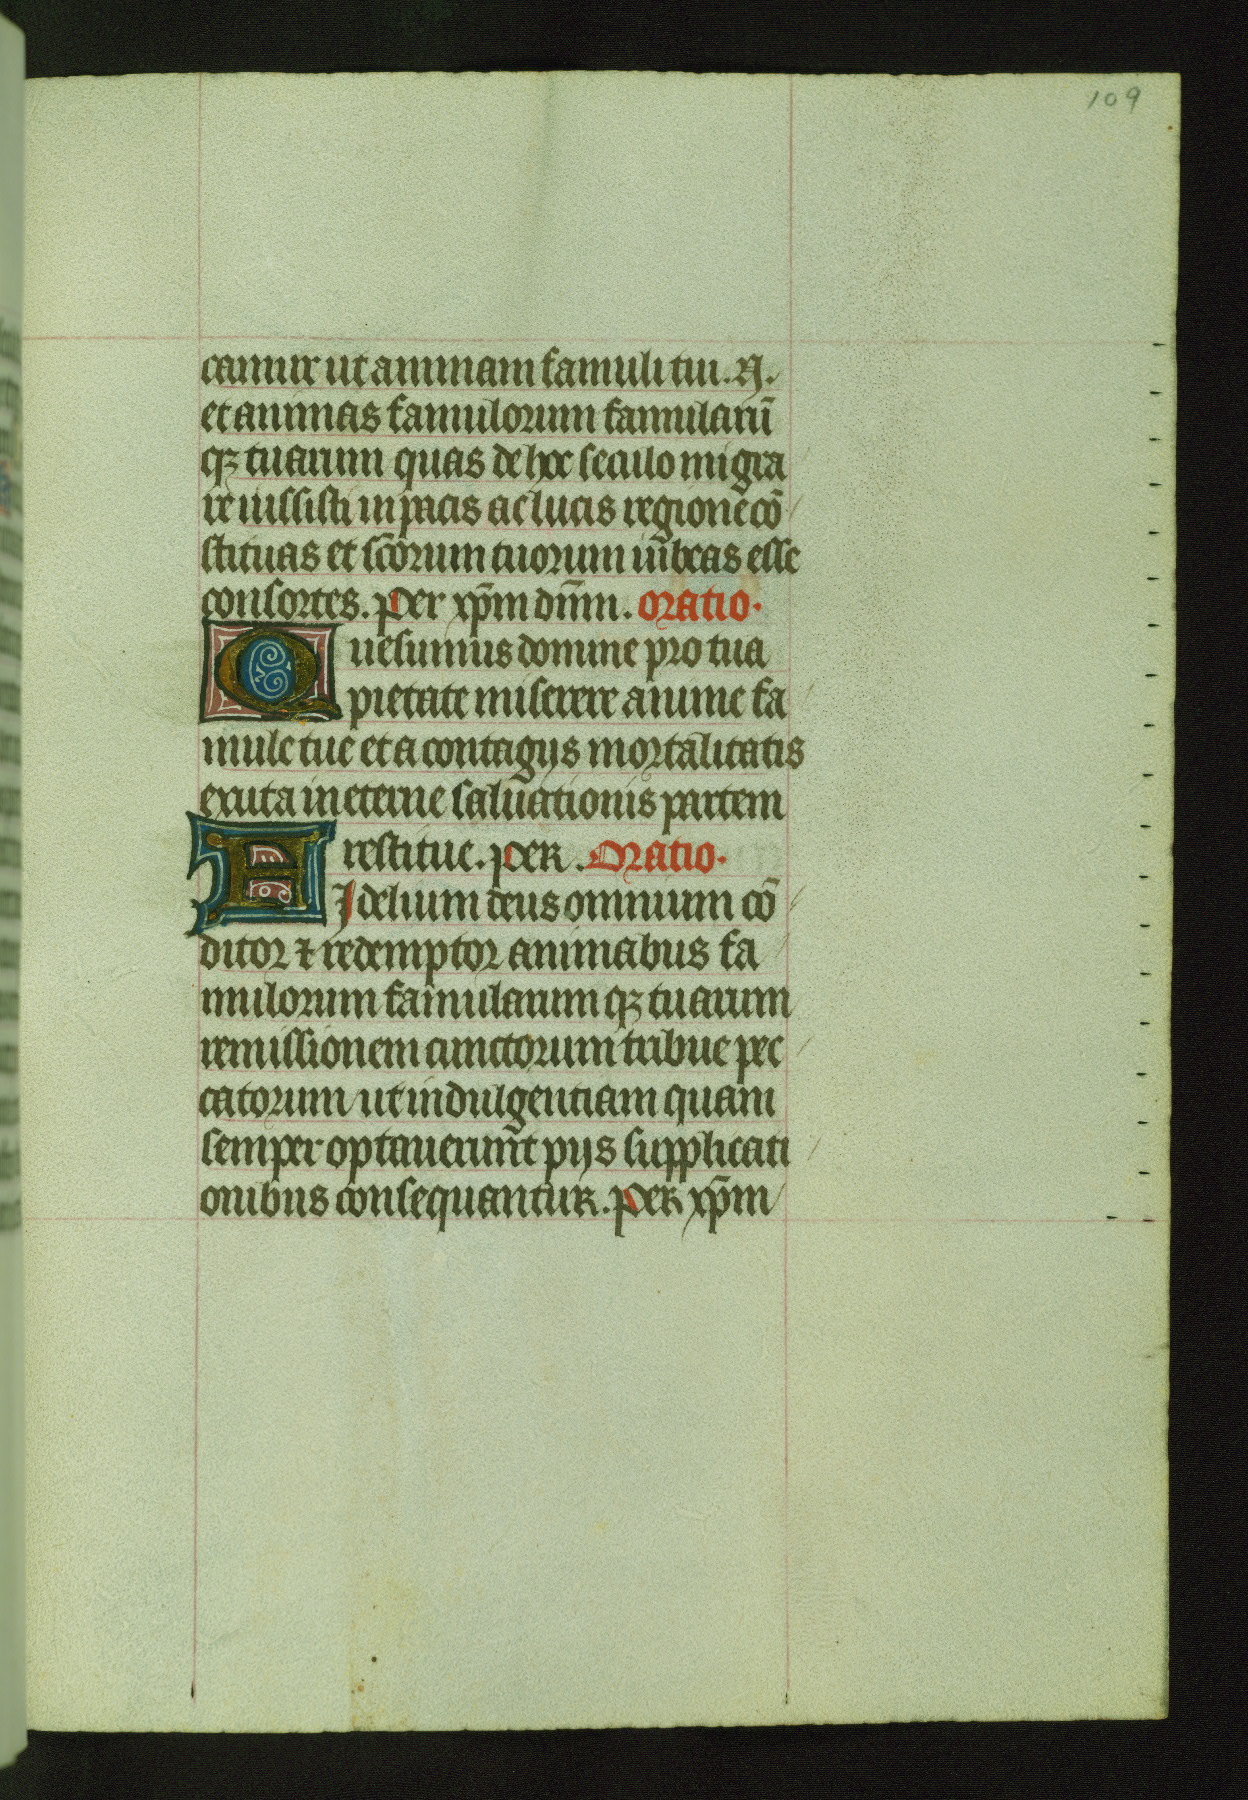 109
camur ut animam famuli tui. N.
et animas famulorum famularū
qꝫ tuarum quas de hoc seculo migra
re iussisti in pacis ac lucis regionē cō
stituas et scōrum tuorum iubeas esse
consortes. per xp̄m dn̄m. oratio.
Quesumus domine pro tua
pietate miserere anime fa
mule tue et a contagijs mortalitatis
exuta in eterne saluationis partem
restitue. per. Oratio.
Fidelium deus omnium cō
ditor ⁊ redemptor animabus fa
mulorum famularum qꝫ tuarum
remissionem cunctorum tribue pec
catorum ut indulgentiam quam
semper optauerunt pijs supplicati
onibus consequantur. per xp̄m